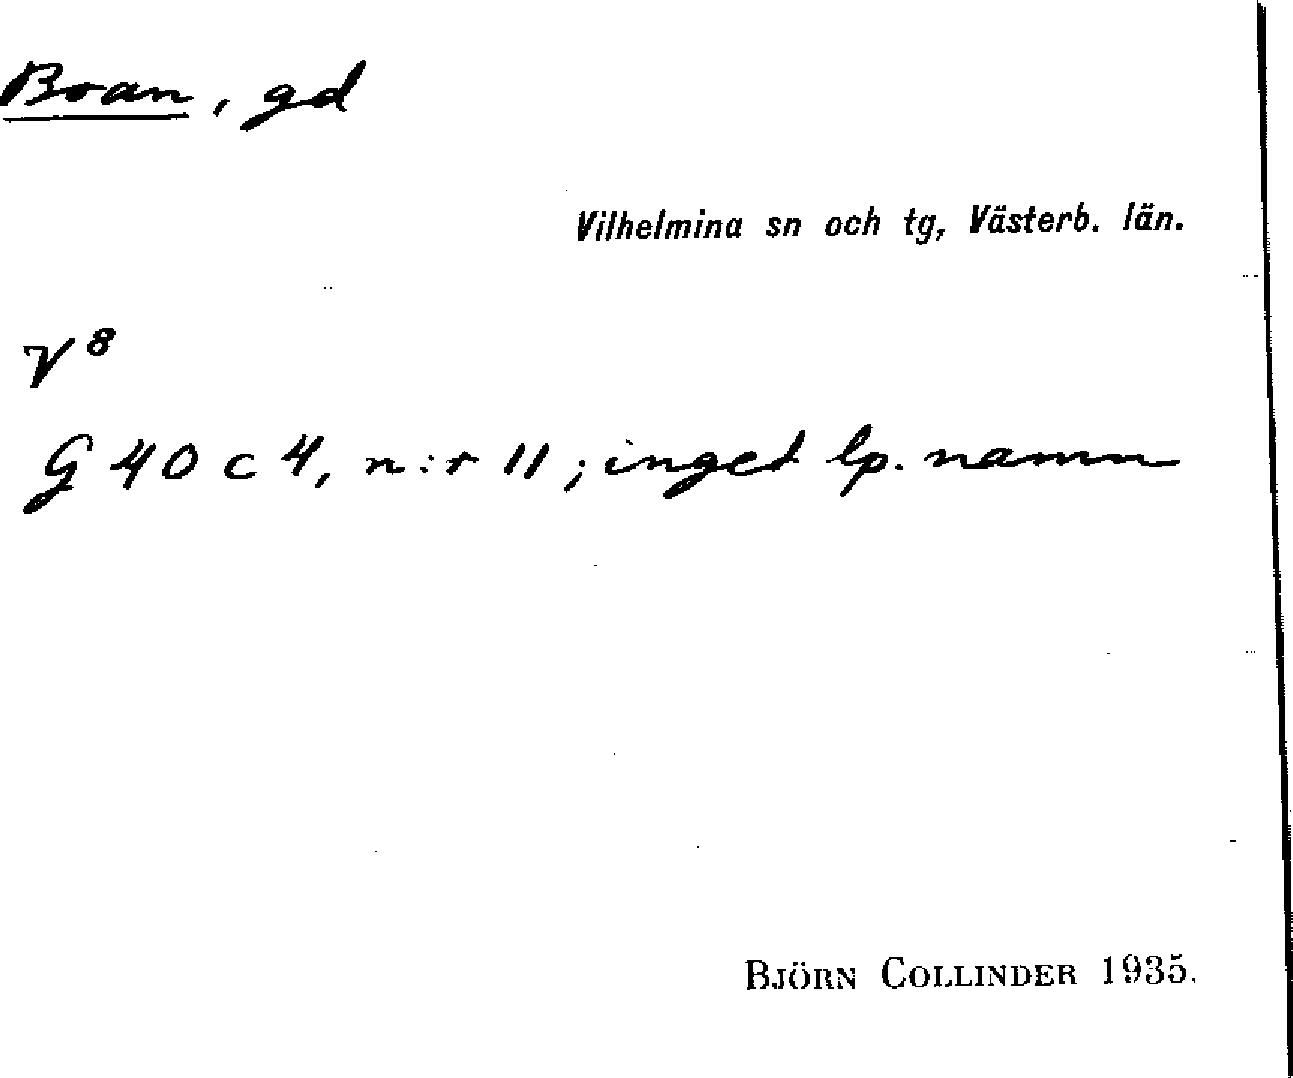 Boan, gd
Vilhelmina sn och tg, Västerb. län.
V 8
G 40 c 4, n:r 11; inget lp. namn
BJÖRN COLLINDER 1935.